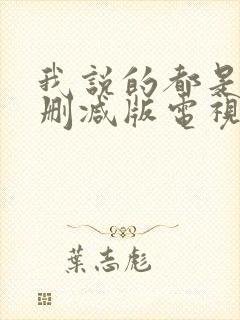 我說的都是
刪減版電視
葉志彪